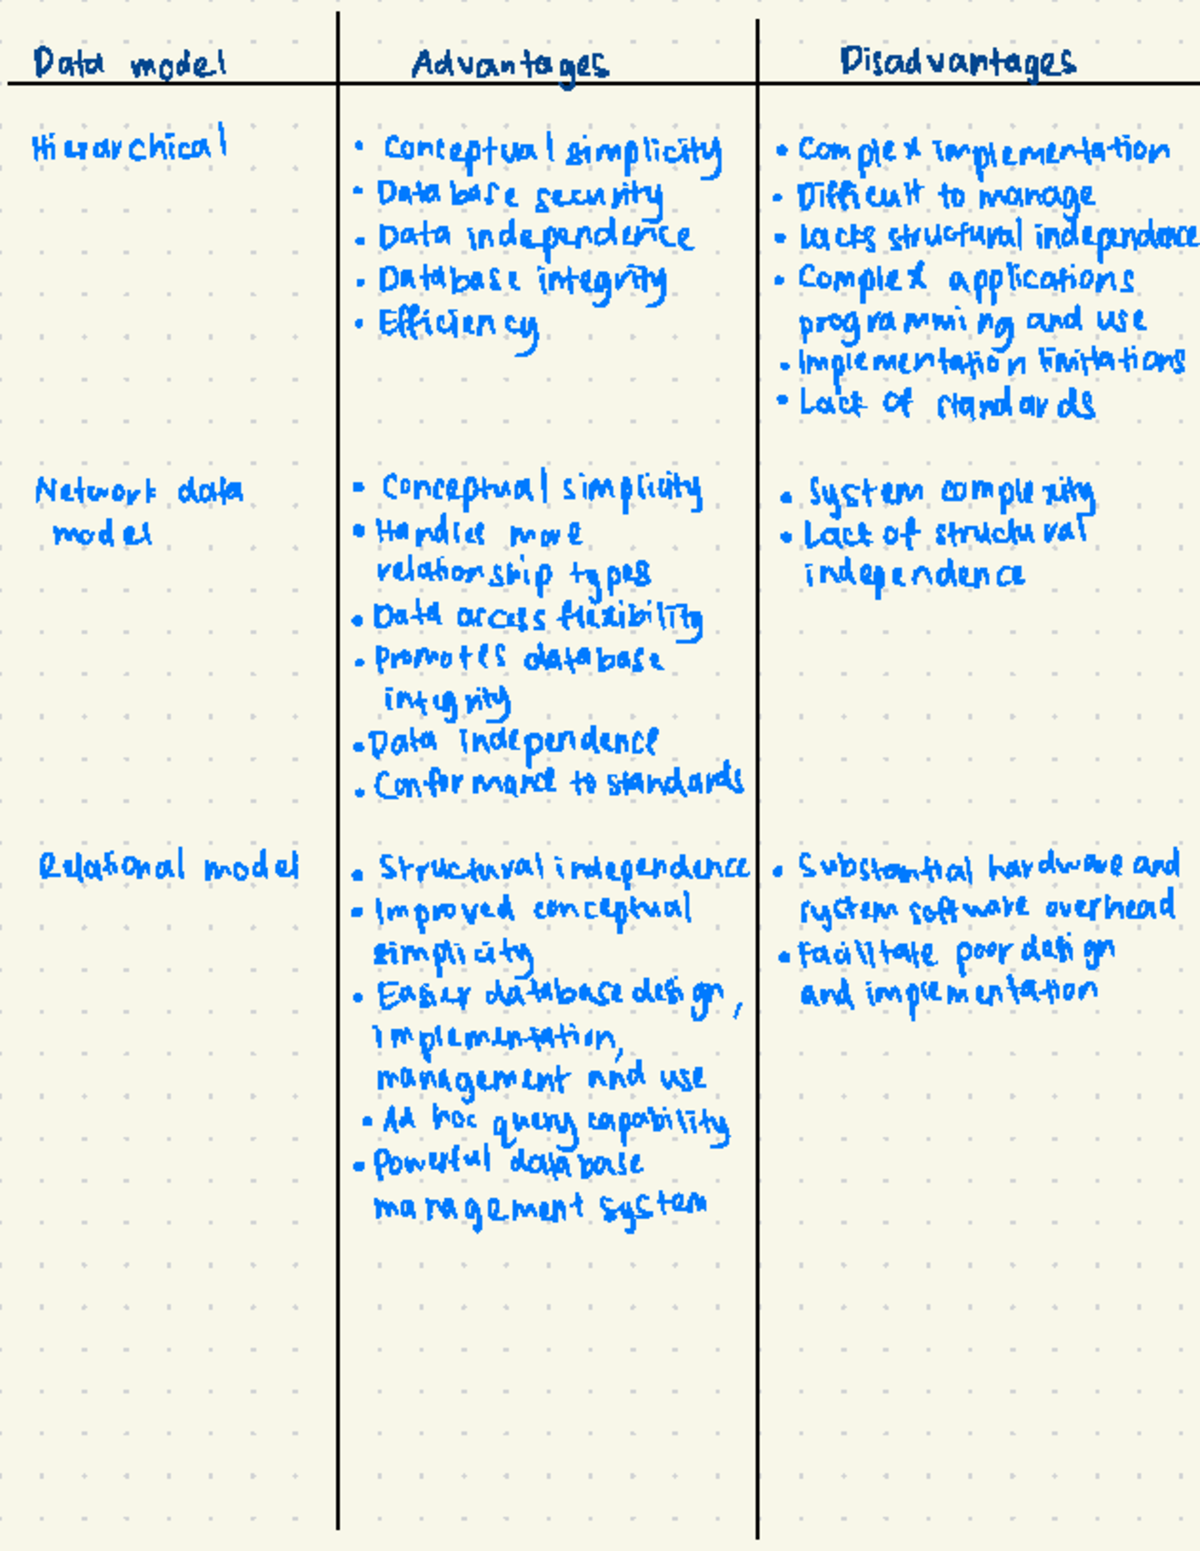 Data model
Advantages
Disadvantages
Hierarchical
• Conceptual simplicity
• Database security
• Data independence
• Database integrity
• Efficiency
• Complex implementation
• Difficult to manage
• Lacks structural independence
• Complex applications
programming and use
• Implementation limitations
• Lack of standards
Network data
model
• Conceptual simplicity
• Handles more
relationship types
• Data access flexibility
• Promotes database
integrity
• Data independence
• Conformance to standards
• System complexity
• Lack of structural
independence
Relational model
• Structural independence
• Improved conceptual
simplicity
• Easier database design,
implementation,
management and use
• Ad hoc query capability
• Powerful database
management system
• Substantial hardware and
system software overhead
• Facilitate poor design
and implementation